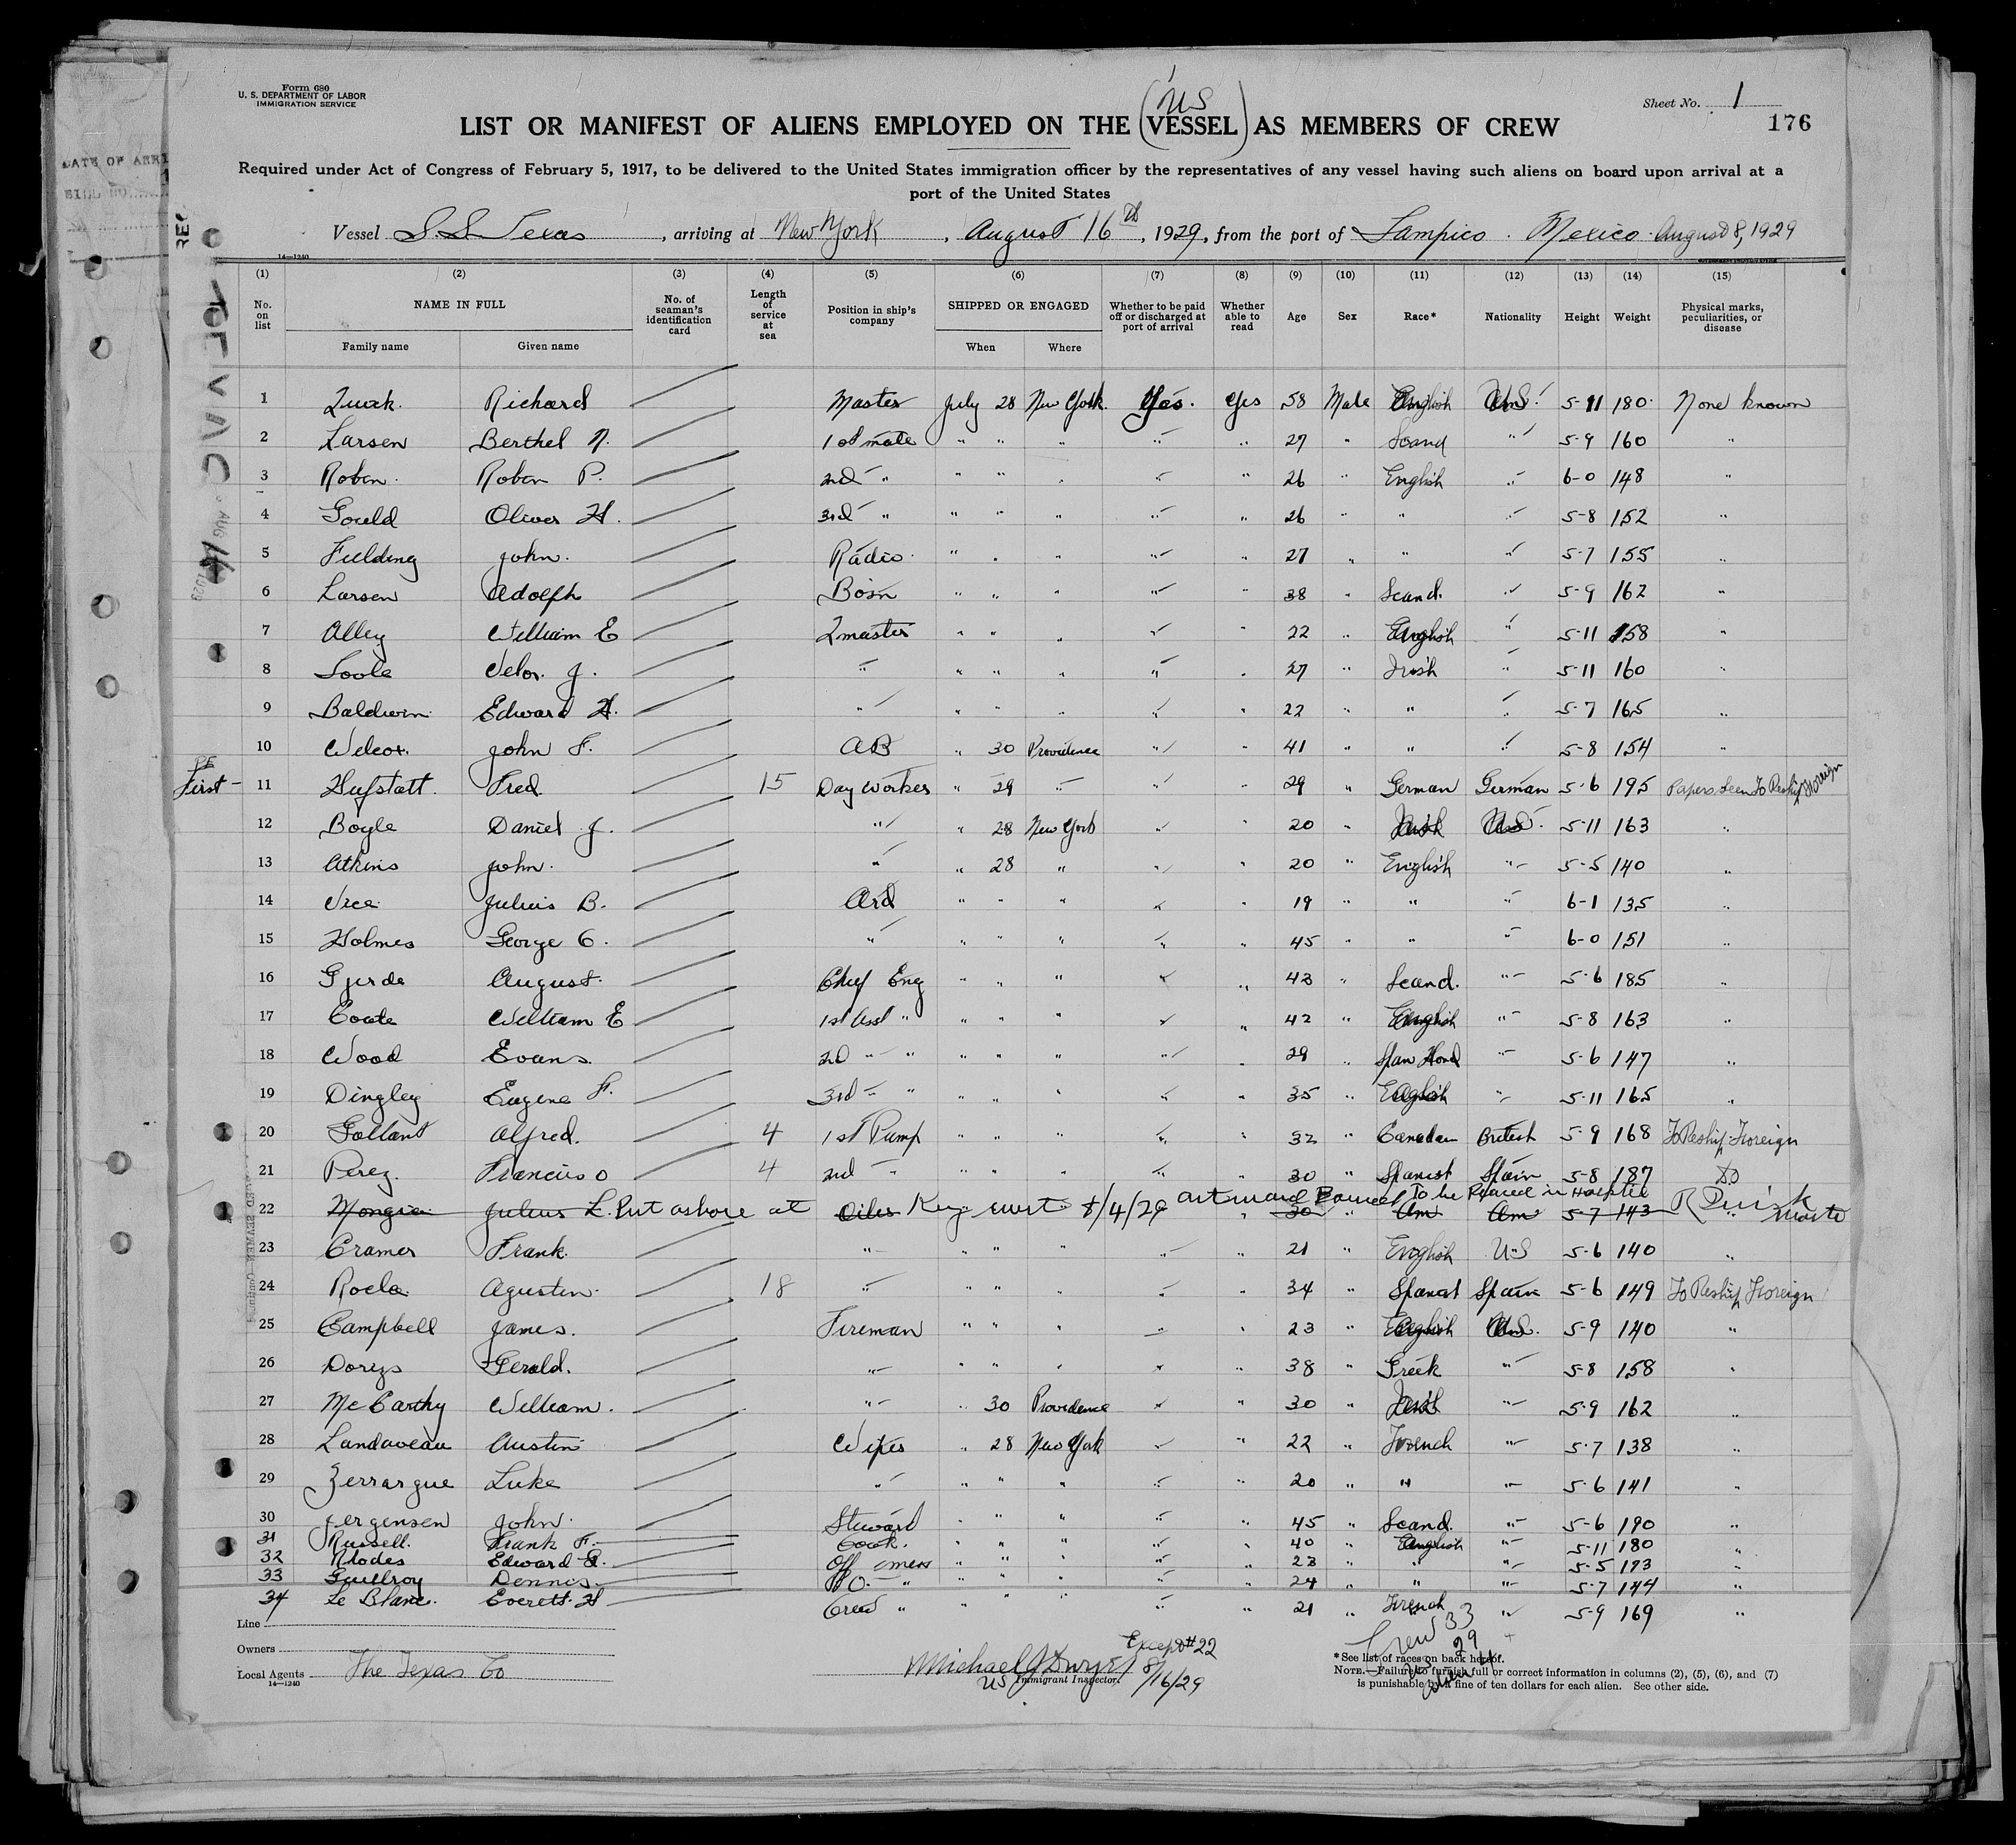 Form 680
U. S. DEPARTMENT OF LABOR
IMMIGRATION SERVICE
Sheet No. 1
176
US
LIST OR MANIFEST OF ALIENS EMPLOYED ON THE (VESSEL) AS MEMBERS OF CREW
Required under Act of Congress of February 5, 1917, to be delivered to the United States immigration officer by the representatives of any vessel having such aliens on board upon arrival at a
port of the United States
Vessel S.S. Texas, arriving at New York, August 16th, 1929, from the port of Tampico. Mexico. August 8, 1929
14—1240
(1) (2) (3) (4) (5) (6) (7) (8) (9) (10) (11) (12) (13) (14) (15)
No. on list NAME IN FULL No. of seaman's identification card Length of service at sea Position in ship's company SHIPPED OR ENGAGED Whether to be paid off or discharged at port of arrival Whether able to read Age Sex Race* Nationality Height Weight Physical marks, peculiarities, or disease
Family name Given name When Where
1 Richard Master July 28 New York. Yes. Yes 58 Male English U.S. 5-11 180 None known
2 Larsen Berthel N. 1st mate " " " " " 27 " Scand " 5-9 160 "
3 Roban Roban P. 2nd " " " " " " 26 " English " 6-0 148 "
4 Gould Oliver H. 3rd " " " " " " 26 " " " 5-8 152 "
5 Fielding John. Radio " " " " " 27 " " " 5-7 155 "
6 Larsen Adolph Bosn " " " " " 38 " Scand. " 5-9 162 "
7 Alley William E Qmaster " " " " " 22 " English " 5-11 158 "
8 Soole J. " " " " " " 27 " Irish " 5-11 160 "
9 Baldwin Edward H. " " " " " " 22 " " " 5-7 165 "
10 Wilcox. John F. AB " 30 Providence " " 41 " " " 5-8 154 "
First - 11 Hufstatt. Fred 15 Day worker " 29 " " " 29 " German German 5-6 195 Papers seen To Reship Foreign
12 Boyle Daniel J. " " 28 New York " " 20 " Irish U.S. 5-11 163 "
13 Atkins John. " " 28 " " " 20 " English " 5-5 140 "
14 Vice Julius B. Ord " " " " " 19 " " " 6-1 135 "
15 Holmes George C. " " " " " " 45 " " " 6-0 151 "
16 Gjerde August. Chief Eng " " " " " 43 " Scand. " 5-6 185 "
17 Coate William E 1st Asst " " " " " " 42 " English " 5-8 163 "
18 Wood Evans. 2nd " " " " " " " 29 " Span Hond " 5-6 147 "
19 Dingley Eugene F. 3rd " " " " " " " 35 " English " 5-11 165 "
20 Gallant Alfred. 4 1st Pump " " " " " 32 " Canadian British 5-9 168 To Reship Foreign
21 Perez. Francisco 4 2nd " " " " " " 30 " Spanish Spain 5-8 187 Do
22 Julius L. Put ashore at Oiler Key West 8/4/29 To be Placed in Hospital 30 " Am Am 5-7 143 Master
23 Cramer Frank. " " " " " " 21 " English U.S 5-6 140 "
24 Agustin. 18 " " " " " " 34 " Spanish Spain 5-6 149 To Reship Foreign
25 Campbell James. Fireman " " " " " 23 " English U.S. 5-9 140 "
26 Gerald. " " " " " " 38 " Greek " 5-8 158 "
27 McCarthy William. " " 30 Providence " " 30 " Irish " 5-9 162 "
28 Landaveau Austin Wiper " 28 New York " " 22 " French " 5-7 138 "
29 Zerrargue Luke " " " " " " 20 " " " 5-6 141 "
30 Jergensen John. Steward " " " " " 45 " Scand. " 5-6 190 "
31 Russell. Frank F. Cook. " " " " " 40 " English " 5-11 180 "
32 Rhodes Edward Off mess " " " " " 23 " " " 5-5 173 "
33 Guillroy Dennis P.O. " " " " " " 24 " " " 5-7 144 "
34 Le Blanc. Everett H Crew " " " " " " 21 " French " 5-9 169 "
Line
Owners
Local Agents The Texas Co
14—1240
Except #22
Michael J Dwyer 8/16/29
US Immigrant Inspector.
Crew 33
US 29
Alien 4
*See list of races on back hereof.
NOTE.—Failure to furnish full or correct information in columns (2), (5), (6), and (7)
is punishable by a fine of ten dollars for each alien. See other side.